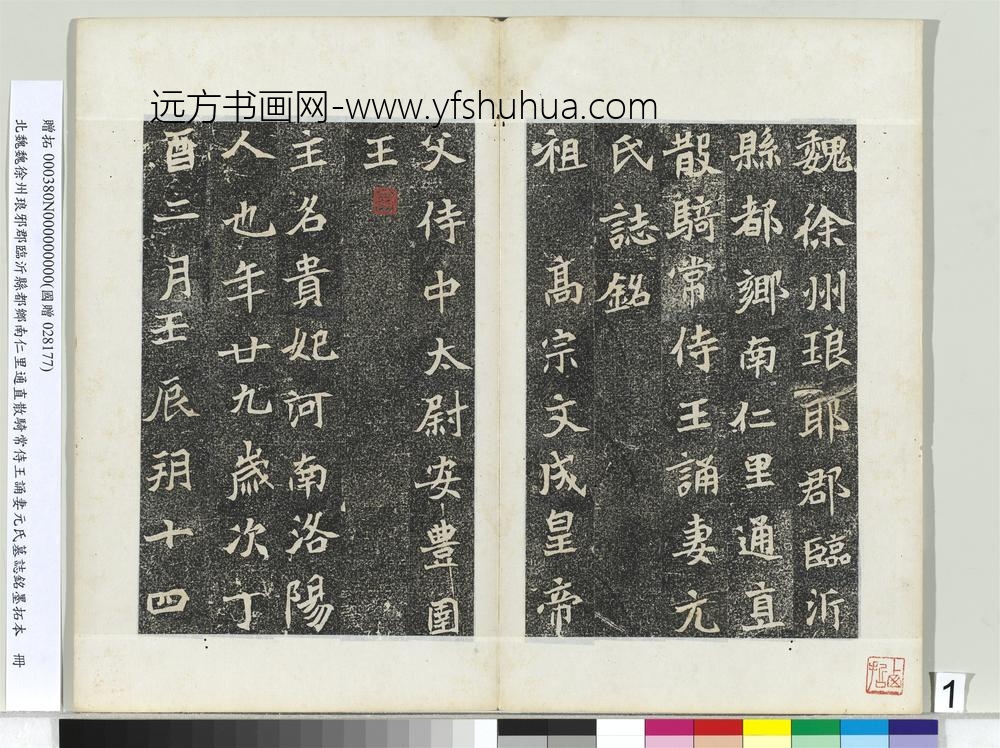 远方书画网-www.yfshuhua.com
魏徐州琅耶郡臨沂
縣都鄉南仁里通直
散騎常侍王誦妻元
氏誌銘
祖高宗文成皇帝
父侍中太尉安豐圉
王
主名貴妃河南洛陽
人也年廿九歲次丁
酉二月壬辰朔十四
贈拓 000380N000000000(國贈 028177)
北魏魏徐州琅邪郡臨沂縣都鄉南仁里通直散騎常侍王誦妻元氏墓誌銘墨拓本 冊
1